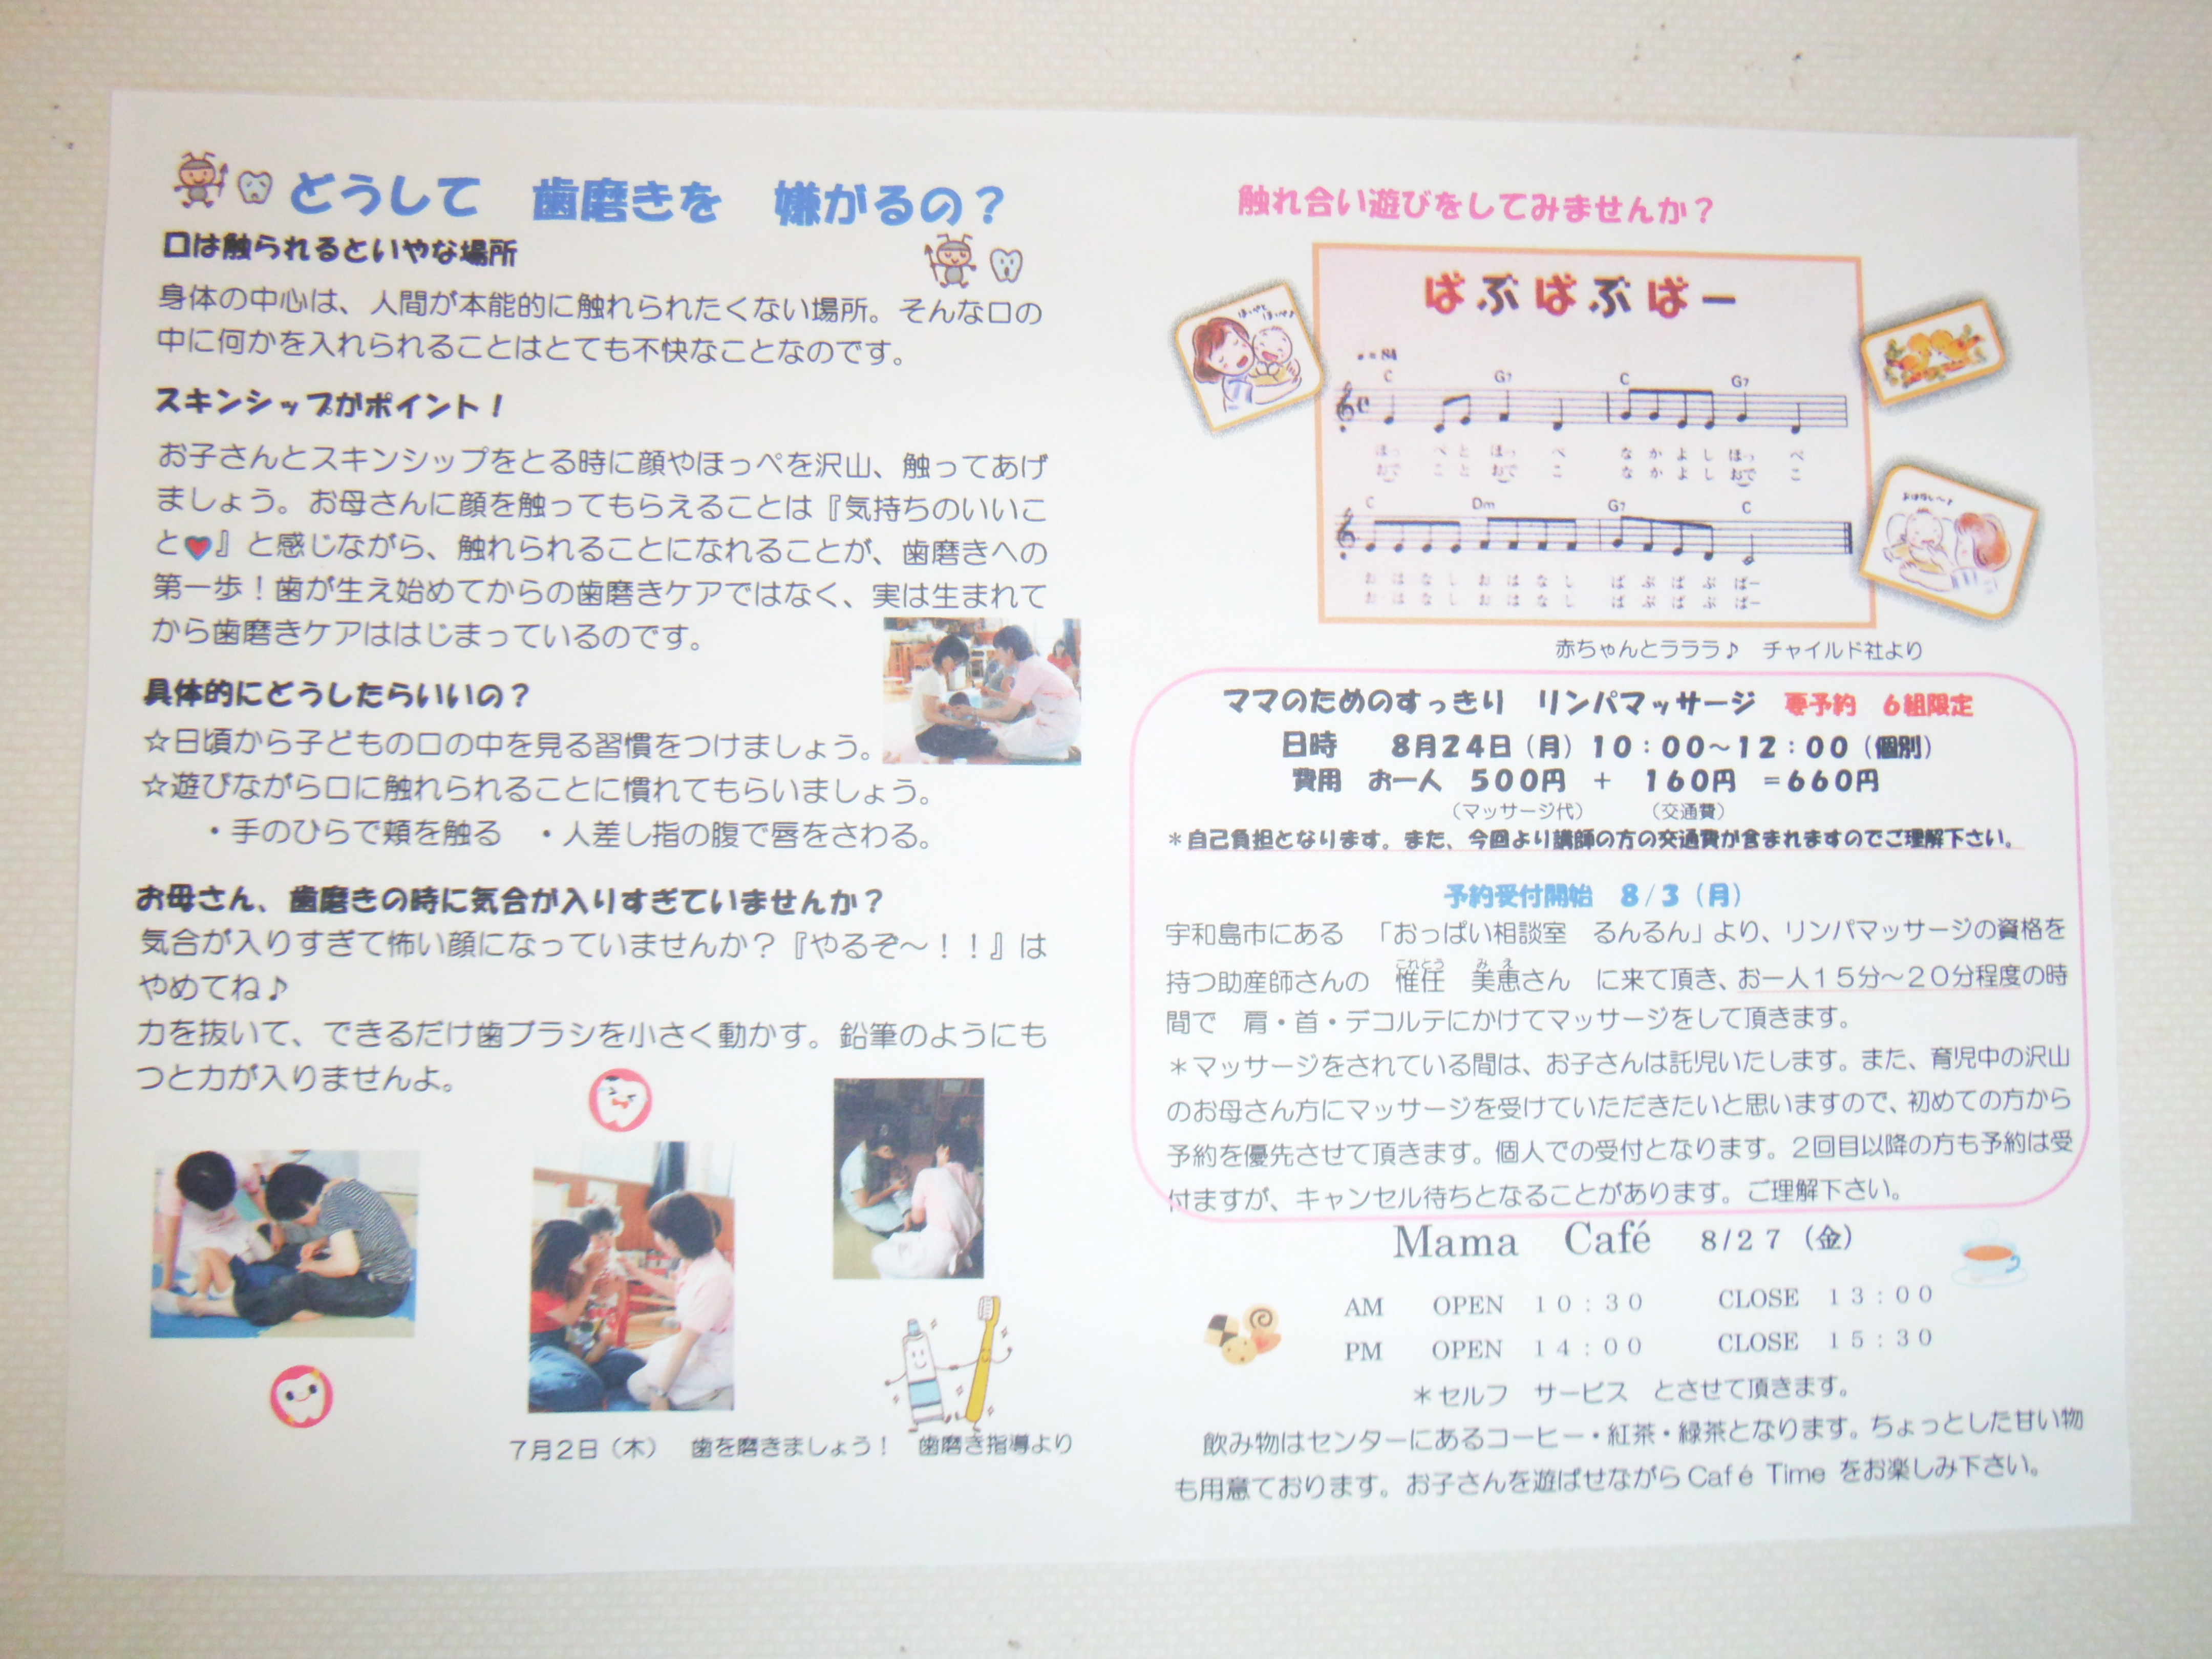 どうして 歯磨きを 嫌がるの？
口は触られるといやな場所
身体の中心は、人間が本能的に触れられたくない場所。そんな口の
中に何かを入れられることはとても不快なことなのです。
スキンシップがポイント！
お子さんとスキンシップをとる時に顔やほっぺを沢山、触ってあげ
ましょう。お母さんに顔を触ってもらえることは『気持ちのいいこ
と♥』と感じながら、触れられることになれることが、歯磨きへの
第一歩！歯が生え始めてからの歯磨きケアではなく、実は生まれて
から歯磨きケアははじまっているのです。
具体的にどうしたらいいの？
☆日頃から子どもの口の中を見る習慣をつけましょう。
☆遊びながら口に触れられることに慣れてもらいましょう。
・手のひらで頬を触る ・人差し指の腹で唇をさわる。
お母さん、歯磨きの時に気合が入りすぎていませんか？
気合が入りすぎて怖い顔になっていませんか？『やるぞ～！！』は
やめてね♪
力を抜いて、できるだけ歯ブラシを小さく動かす。鉛筆のようにも
つと力が入りませんよ。
7月2日（木） 歯を磨きましょう！ 歯磨き指導より
触れ合い遊びをしてみませんか？
ばぶばぶばー
♩=84
C G7 C G7
ほっ ぺ と ほっ ぺ な か よ し ほっ ぺ
おで こ と おで こ な か よ し おで こ
C Dm G7 C
お は な し お は な し ば ぶ ば ぶ ばー
お は な し お は な し ば ぶ ば ぶ ばー
赤ちゃんとラララ♪ チャイルド社より
ママのためのすっきり リンパマッサージ 要予約 6組限定
日時 8月24日（月）10：00～12：00（個別）
費用 お一人 500円 ＋ 160円 ＝660円
（マッサージ代） （交通費）
＊自己負担となります。また、今回より講師の方の交通費が含まれますのでご理解下さい。
予約受付開始 8/3（月）
宇和島市にある 「おっぱい相談室 るんるん」より、リンパマッサージの資格を
これとう みえ
持つ助産師さんの 惟任 美恵さん に来て頂き、お一人15分～20分程度の時
間で 肩・首・デコルテにかけてマッサージをして頂きます。
＊マッサージをされている間は、お子さんは託児いたします。また、育児中の沢山
のお母さん方にマッサージを受けていただきたいと思いますので、初めての方から
予約を優先させて頂きます。個人での受付となります。2回目以降の方も予約は受
付ますが、キャンセル待ちとなることがあります。ご理解下さい。
Mama Café 8/27（金）
AM OPEN 10：30 CLOSE 13：00
PM OPEN 14：00 CLOSE 15：30
＊セルフ サービス とさせて頂きます。
飲み物はセンターにあるコーヒー・紅茶・緑茶となります。ちょっとした甘い物
も用意ております。お子さんを遊ばせながら Café Time をお楽しみ下さい。